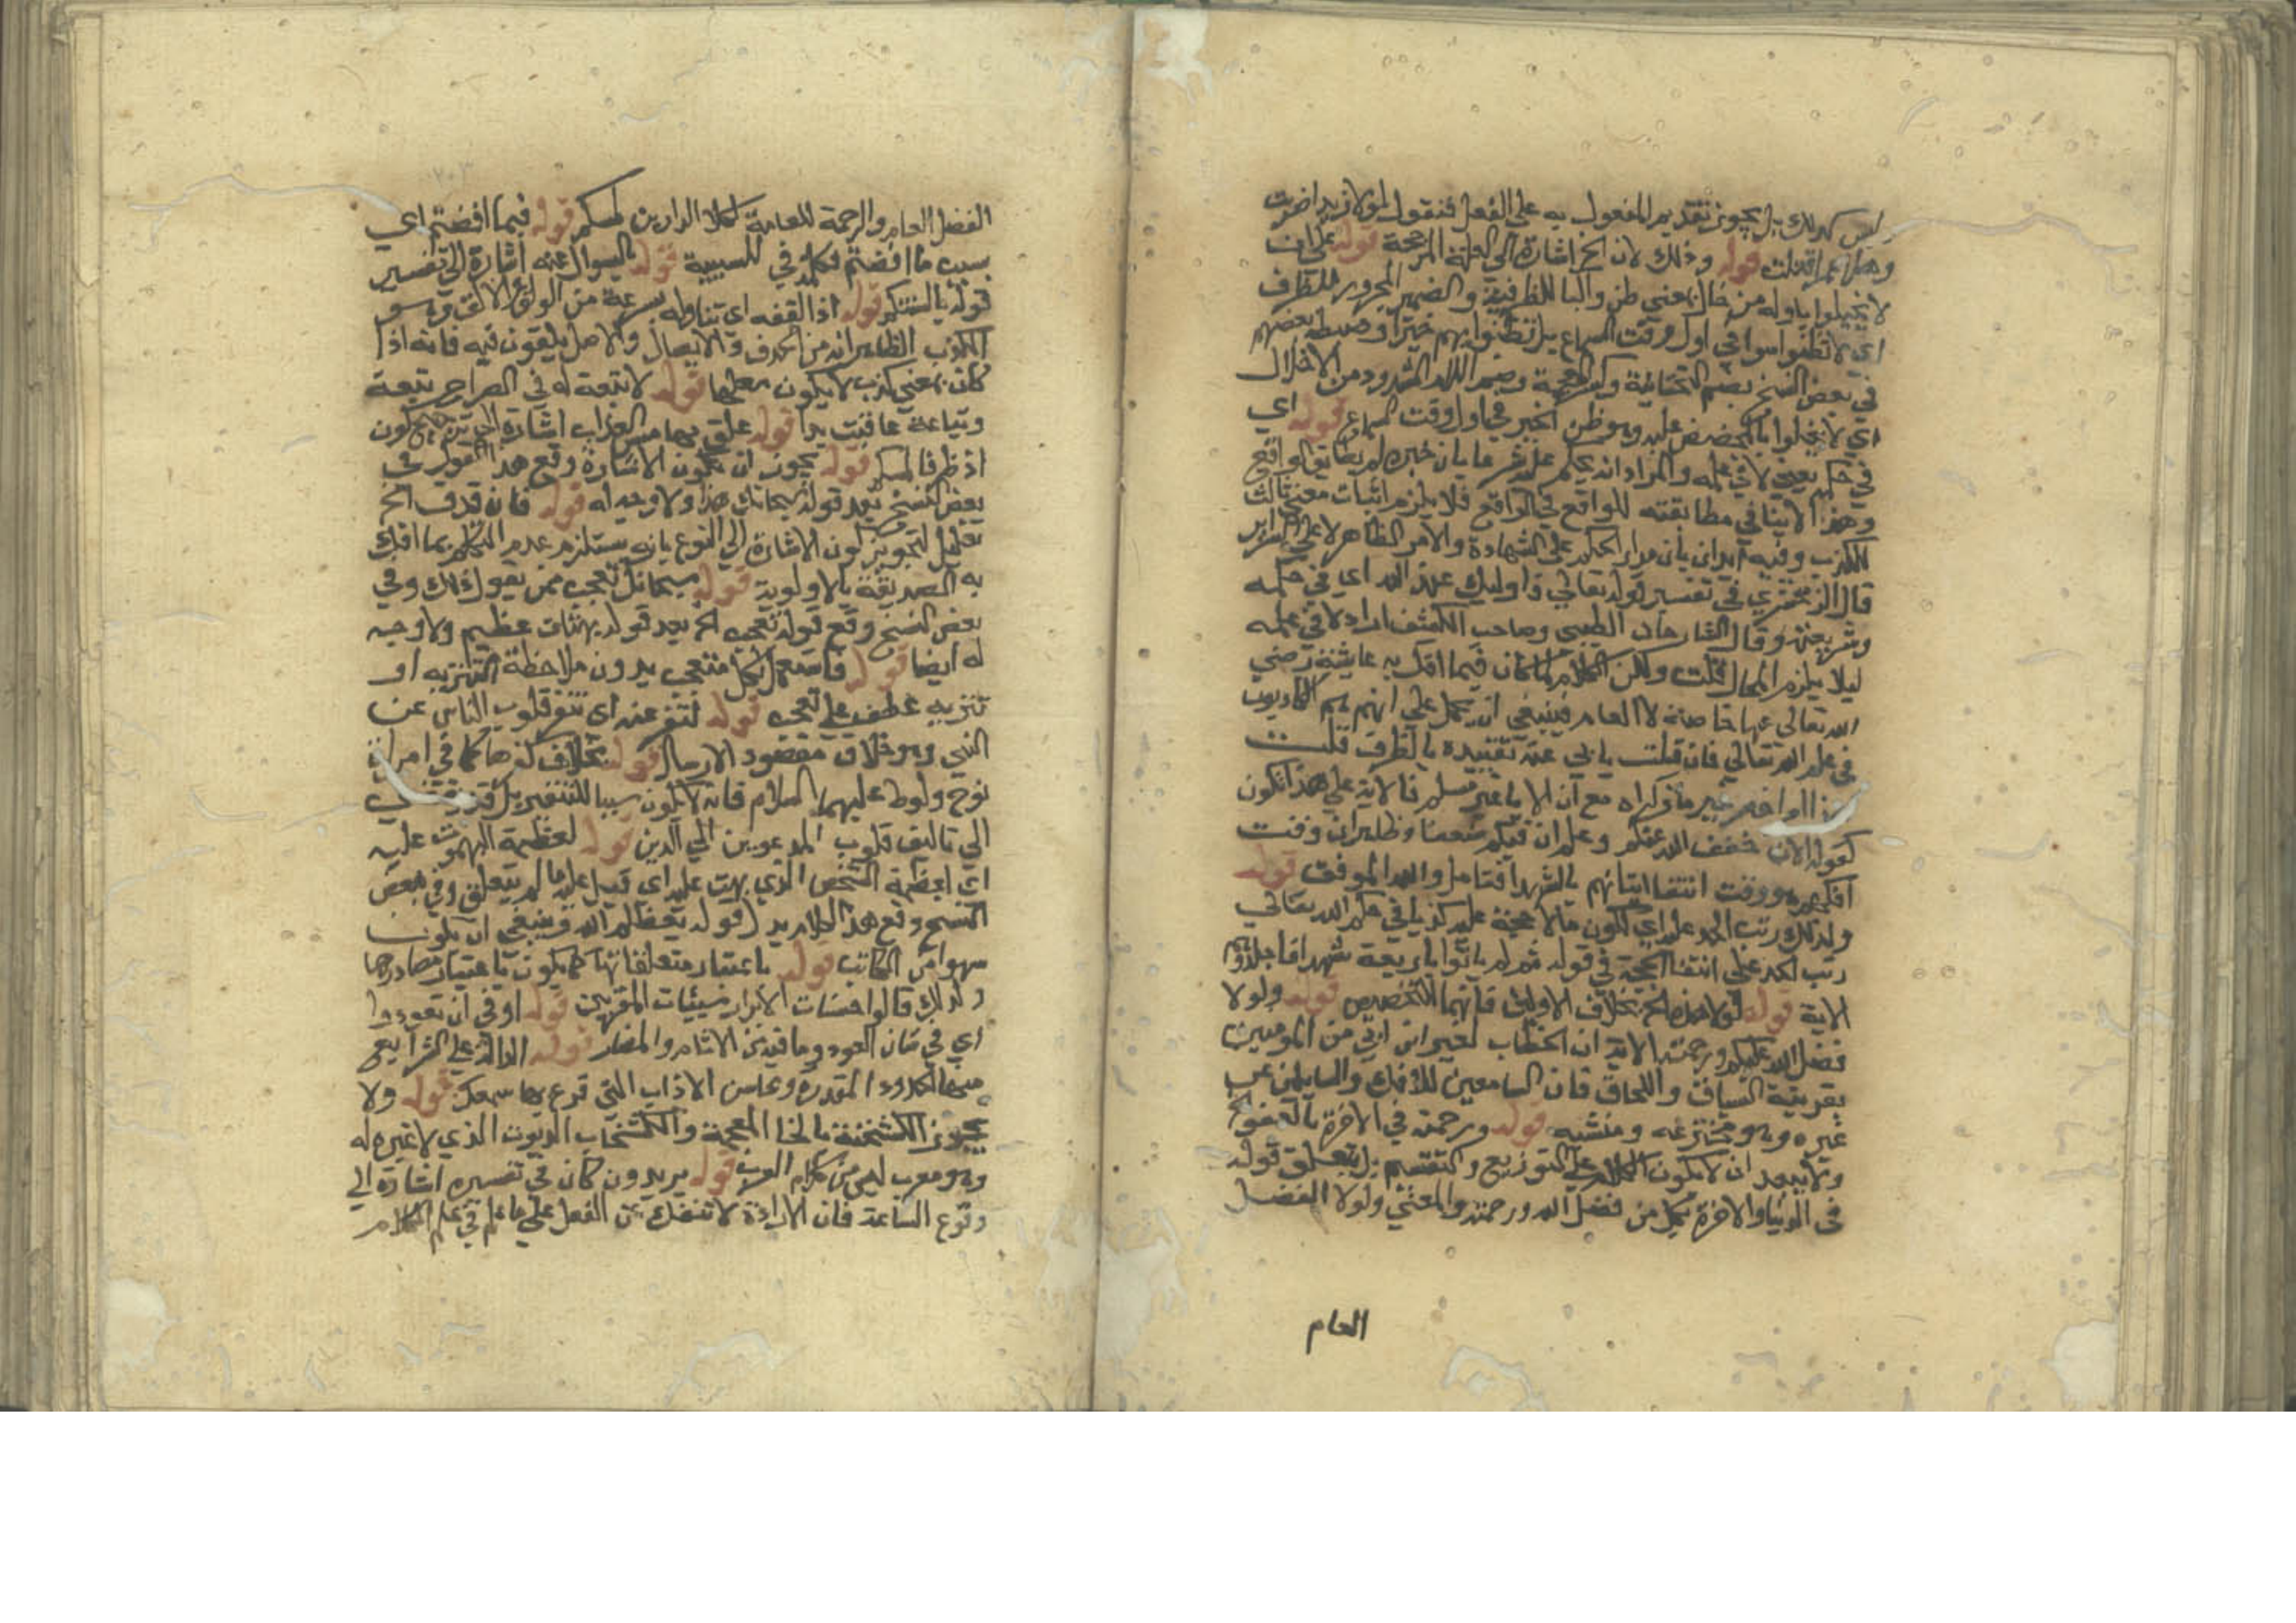 ليس كذلك بل يجوز تقديم المفعول به على الفعل فنقول لولا زيدا ضربت
وهلا عمرا قتلت قوله وذلك لان الخ اشارة الى العلة المرجحة قوله على ان
لا يخلوا باوله من خال بمعنى ظن والبا للظرفية والضمير المجرور للظرف
اي لا تظنوا سوا في اول وقت السماع بل تظنوا بهم خيرا وضبطه بعضهم
في بعض النسخ بضم التحتانية وكسر المعجمة وضم اللام المشدودة من الاخلال
اي لا يخلوا بالمخصص عليه وهو ظن الخير في اول وقت السماع قوله اي
في حكمه يعني لا في علمه والمراد انه يحكم على الشرعا بان خبره لم يطابق الواقع
وهذا لا ينافي مطابقته للواقع في الواقع فلا يلزم اثبات معنى ثالث
للكذب وفيه ايذان بان مدار الحكم على الشهادة والامر الظاهر لا على السراير
قال الزمخشري في تفسير قوله تعالى فاوليك عند الله اي في حكمه
وشريعته وقال الشارحان الطيبى وصاحب الكشف اراد لا في علمه
ليلا يلزم المحال قلت ولكن الكلام لما كان فيما افك به عايشة رضي
الله تعالى عنها خاصة لا العام فينبغي ان يحمل على انهم هم الكاذبون
في علم الله تعالى فان قلت يابى عنه تقييده بالظرف قلت
غير ما ذكراه مع ان الابا غير مسلم فالاية على هذا تكون
كقوله الان خفف الله عنكم وعلم ان فيكم ضعفا وظاهر ان وقت
افكهم هو وقت انتفا اتيانهم بالشهدا فتامل والله الموفق قوله
ولذلك رتب الحد عليه اي لكون ما لا حجة عليه كذبا في حكم الله تعالى
رتب الحد على انتفا الحجة في قوله ثم لم ياتوا باربعة شهدا فاجلدوهم
الاية قوله لولا هذه الخ بخلاف الاولى فانهما للتخصيص قوله ولولا
فضل الله عليكم ورحمته الاية ان الخطاب لغير ابن ابي من المومنين
بقرينة السياق واللحاق فان السامعين للافك والسايلين عن
غيره وهو مخترعه ومنشيه قوله ورحمته في الاخرة بالعفو الخ
ولا يبعد ان لا يكون الكلام على التوزيع والتقسيم بل يتعلق قوله
في الدنيا والاخرة بكل من فضل الله ورحمته والمعنى ولولا الفضل
العام
الفضل العام والرحمة العامة لكلا الدارين لمسكم قوله فيما افضتم اي
بسبب ما افضتم فكلمة في للسببية قوله بالسوال عنه اشارة الى تفسير
قوله بالسنتكم قوله اذا لقفه اي تناوله بسرعة من الولق والالق وهو
الكذب الظاهر انه من الحذف والايصال والاصل يلقون فيه فانه اذا
كان بمعنى كذب لا يكون متعديا قوله لا تبعة له في الصراح تبعة
وتباعة عاقبت بد قوله علق بهما مس العذاب اشارة الى ترجيح كون
اذ ظرفا لمسكم قوله يجوز ان تكون الاشارة وقع هذا القول في
بعض النسخ بعد قوله سبحانك هذا ولا وجه له قوله فان قذف الخ
تعليل لتجويز كون الاشارة الى النوع بانه يستلزم عدم التكلم بما افك
به الصديقة بالاولوية قوله سبحانك تعجب ممن يقول ذلك وفي
بعض النسخ وقع قوله تعجب الخ بعد قوله بهتان عظيم ولا وجه
له ايضا قوله فاستعمل لكل متعجب بدون ملاحظة التنزيه او
تنزيه عطف على تعجب قوله لتنفر عنه اي تنفر قلوب الناس عن
النبي وهو خلاف مقصود الارسال قوله بخلاف كفرها كما في امراة
نوح ولوط عليهما السلام فانه لا يكون سببا للتنفير بل قد يقتضي
الى تاليف قلوب المدعويين الى الدين قوله لعظمة المبهوت عليه
اي لعظمة الشخص الذي بهت عليه اي قيل عليه ما لم يتعلق وفي بعض
النسخ وقع هذا الكلام بدل قوله يعظكم الله وينبغي ان يكون
سهوا من الكاتب قوله باعتبار متعلقاتها كما يكون باعتبار مصادرها
ولذلك قالوا حسنات الابرار سيئات المقربين قوله او في ان تعودوا
اي في شان العود وما فيه من الاثام والمضار قوله الدالة على الشرايع
منها الحدود المقدره ومحاسن الاداب التي قرع بها سمعك قوله ولا
يجوز الكشخنة بالخا المعجمة والكشخان الديوث الذي لا غيره له
وهو معرب ليس من كلام العرب قوله يريدون كان في تفسيره اشارة الى
وقوع الساعة فان الارادة لا تنفك عن الفعل على ما علم في علم الكلام